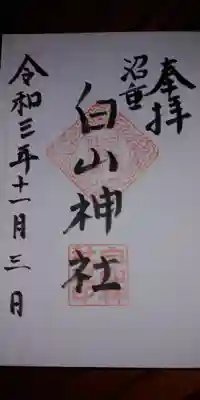 奉拝
沼垂
白山神社
令和三年十一月三日